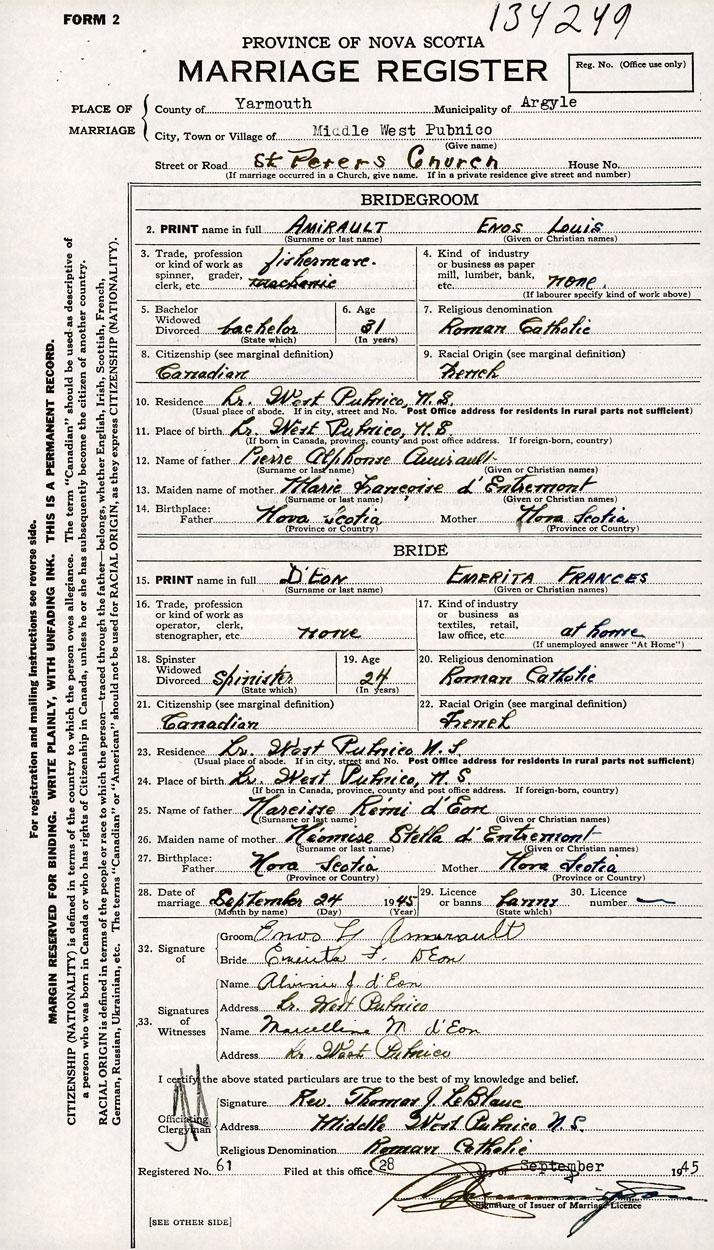 FORM 2
134249
PROVINCE OF NOVA SCOTIA
MARRIAGE REGISTER
Reg. No. (Office use only)
PLACE OF MARRIAGE
County of Yarmouth Municipality of Argyle
City, Town or Village of Middle West Pubnico
(Give name)
Street or Road St Peters Church House No.
(If marriage occurred in a Church, give name. If in a private residence give street and number)
BRIDEGROOM
2. PRINT name in full AMIRAULT ENOS LOUIS
(Surname or last name) (Given or Christian names)
3. Trade, profession or kind of work as spinner, grader, clerk, etc. fisherman. mechanic
4. Kind of industry or business as paper mill, lumber, bank, etc. none.
(If labourer specify kind of work above)
5. Bachelor Widowed Divorced bachelor
(State which)
6. Age 31
(In years)
7. Religious denomination
Roman Catholic
8. Citizenship (see marginal definition)
Canadian
9. Racial Origin (see marginal definition)
French
10. Residence Lr. West Pubnico, N.S.
(Usual place of abode. If in city, street and No. Post Office address for residents in rural parts not sufficient)
11. Place of birth Lr. West Pubnico, N.S
(If born in Canada, province, county and post office address. If foreign-born, country)
12. Name of father Pierre Alphonse Amirault
(Surname or last name) (Given or Christian names)
13. Maiden name of mother Marie Françoise d'Entremont
(Surname or last name) (Given or Christian names)
14. Birthplace: Father Nova Scotia Mother Nova Scotia
(Province or Country) (Province or Country)
BRIDE
15. PRINT name in full D'EON EMERITA FRANCES
(Surname or last name) (Given or Christian names)
16. Trade, profession or kind of work as operator, clerk, stenographer, etc. none
17. Kind of industry or business as textiles, retail, law office, etc. at home
(If unemployed answer "At Home")
18. Spinster Widowed Divorced Spinister
(State which)
19. Age 24
(In years)
20. Religious denomination
Roman Catholic
21. Citizenship (see marginal definition)
Canadian
22. Racial Origin (see marginal definition)
French
23. Residence Lr. West Pubnico N.S.
(Usual place of abode. If in city, street and No. Post Office address for residents in rural parts not sufficient)
24. Place of birth Lr. West Pubnico, N.S.
(If born in Canada, province, county and post office address. If foreign-born, country)
25. Name of father Narcisse Rémi d'Eon
(Surname or last name) (Given or Christian names)
26. Maiden name of mother Stella d'Entremont
(Surname or last name) (Given or Christian names)
27. Birthplace: Father Nova Scotia Mother Nova Scotia
(Province or Country) (Province or Country)
28. Date of marriage September 24 1945
(Month by name) (Day) (Year)
29. Licence or banns banns
(State which)
30. Licence number —
32. Signature of
Groom Enos L Amirault
Bride Emerita F. D'Eon
33. Signatures of Witnesses
Name J. d'Eon
Address Lr. West Pubnico
Name M. d'Eon
Address Lr. West Pubnico
I certify the above stated particulars are true to the best of my knowledge and belief.
Officiating Clergyman
Signature Rev. Thomas J. LeBlanc
Address Middle West Pubnico N.S.
Religious Denomination Roman Catholic
Registered No. 61 Filed at this office 28 day of September 1945
Signature of Issuer of Marriage Licence
[SEE OTHER SIDE]
For registration and mailing instructions see reverse side.
MARGIN RESERVED FOR BINDING. WRITE PLAINLY, WITH UNFADING INK. THIS IS A PERMANENT RECORD.
CITIZENSHIP (NATIONALITY) is defined in terms of the country to which the person owes allegiance. The term "Canadian" should be used as descriptive of
a person who was born in Canada or who has rights of Citizenship in Canada, unless he or she has subsequently become the citizen of another country.
RACIAL ORIGIN is defined in terms of the people or race to which the person—traced through the father—belongs, whether English, Irish, Scottish, French,
German, Russian, Ukrainian, etc. The terms "Canadian" or "American" should not be used for RACIAL ORIGIN, as they express CITIZENSHIP (NATIONALITY).